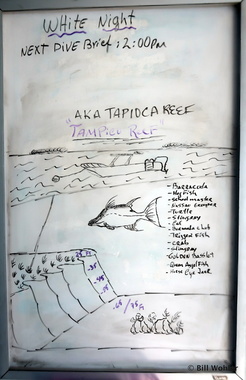 White Night
NEXT DIVE Brief: 2:00pm
AKA TAPIOCA REEF
"TAMPICO REEF"
- Barracuda
- Hog Fish
- School master
- Nassau Grouper
- Turtle
- Stingray
- Eel
- Bermuda chub
- Trigger Fish
- Crab
- Stingray
- Golden Hamlet
- Queen Angel Fish
- Horse Eye Jack
© Bill Wohler